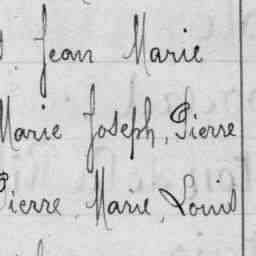 Jean Marie
Marie Joseph, Pierre
Pierre, Marie, Louis